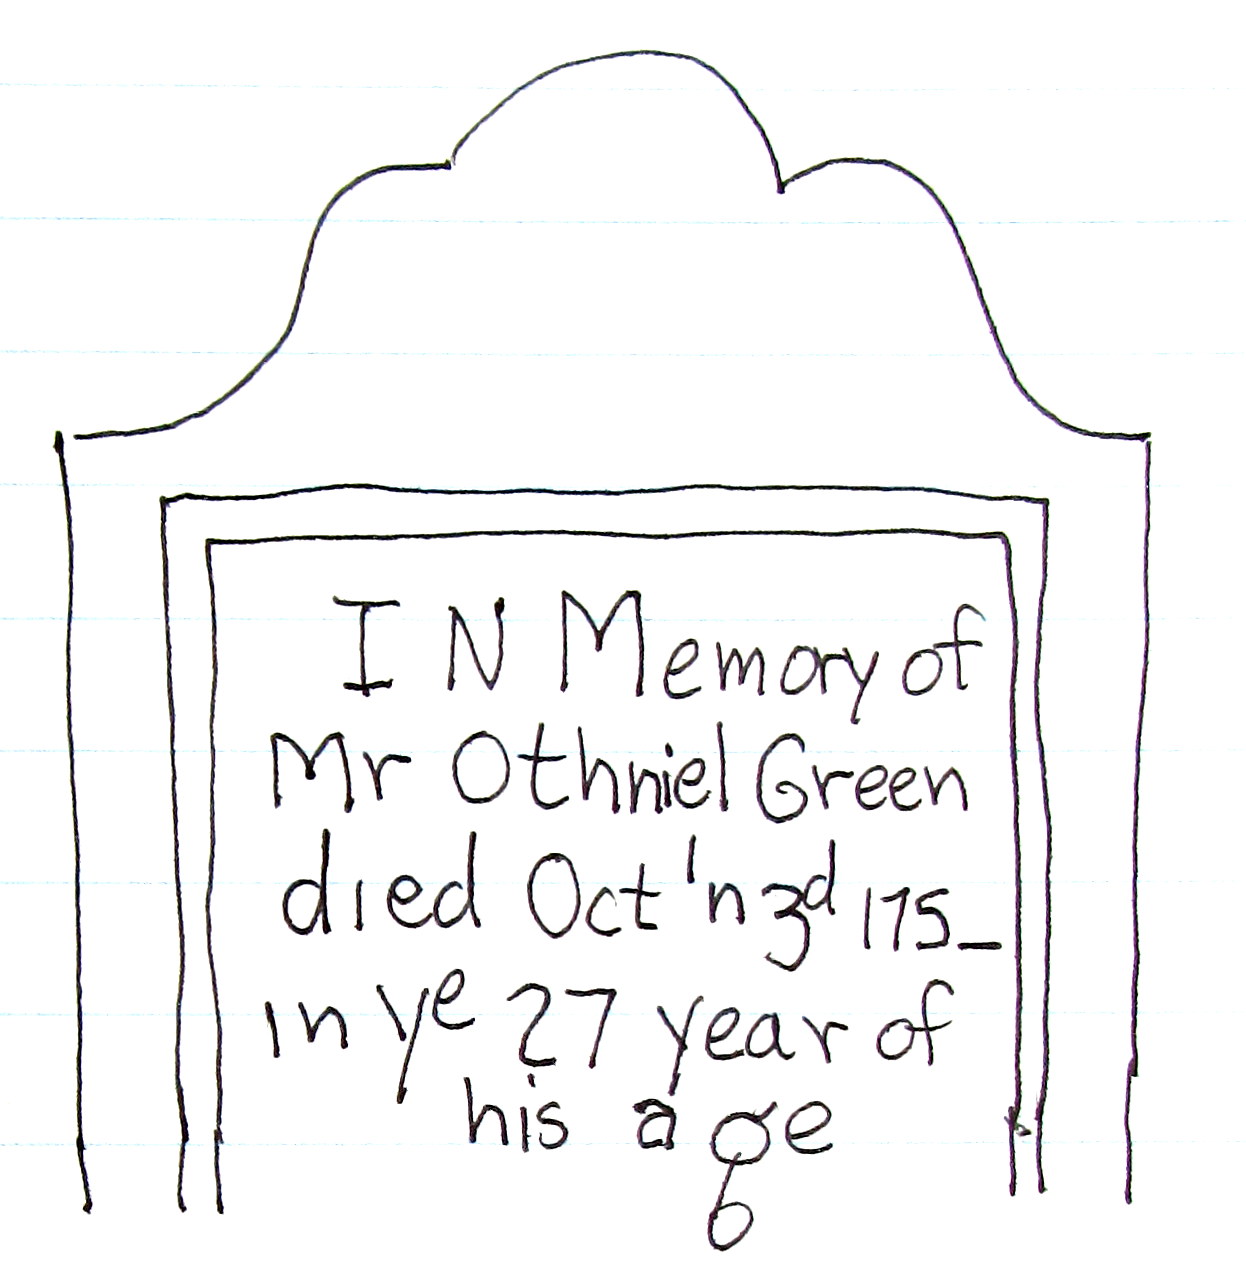 IN Memory of
Mr Othniel Green
died Oct'n 3d 175_
in ye 27 year of
his age